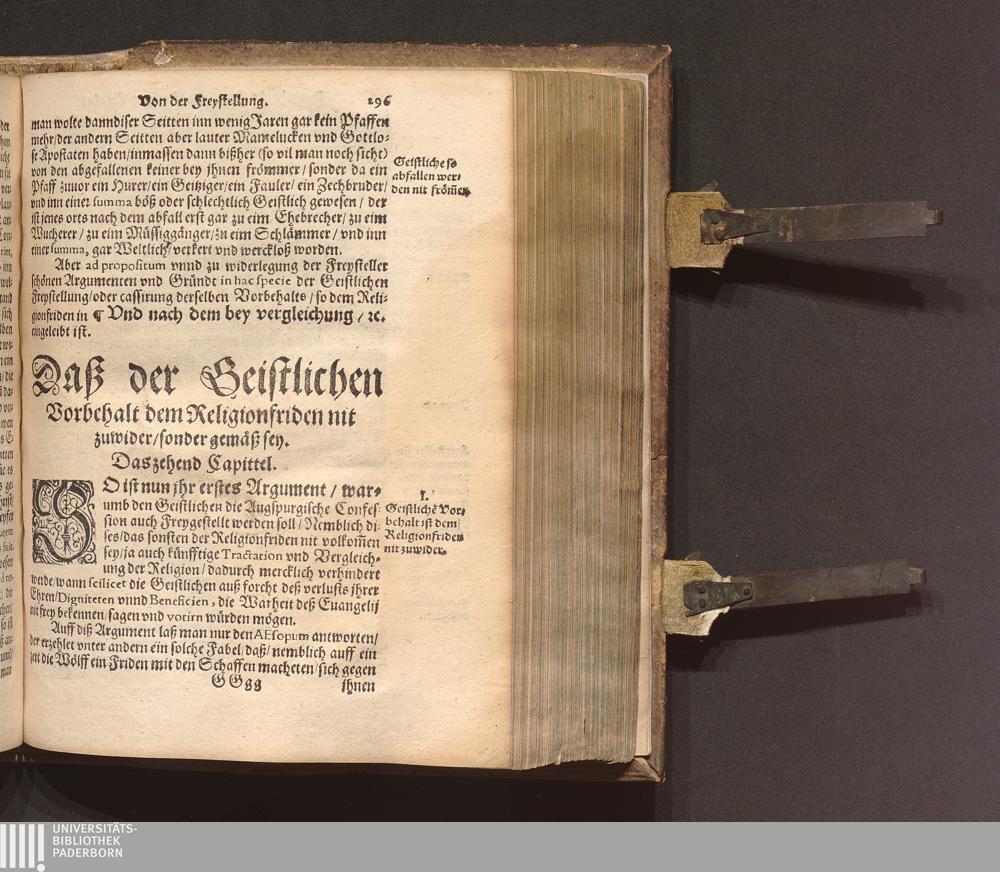 Von der Freystellung. 296
man wolte dann diser Seitten inn wenig Jaren gar kein Pfaffen
mehr/der andern Seitten aber lauter Mamelucken vnd Gottlo-
se Apostaten haben/inmassen dann bißher (so vil man noch sicht)
von den abgefallenen keiner bey jhnen frömmer/sonder da ein
Pfaff zuuor ein Hurer/ein Geitziger/ein Fauler/ein Zechbruder/
vnd inn einer summa böß oder schlechtlich Geistlich gewesen/der
ist jenes orts nach dem abfall erst gar zu eim Ehebrecher/zu eim
Wucherer/zu eim Müssiggänger/zu eim Schlämmer/vnd inn
einer summa, gar Weltlich/verkert vnd werckloß worden.
Geistliche so
abfallen wer-
den nit frömer.
Aber ad propositum vnnd zu widerlegung der Freysteller
schönen Argumenten vnd Gründt in hac specie der Geistlichen
Freystellung/oder cassirung derselben Vorbehalts/so dem Reli-
gionfriden in ¶ Vnd nach dem bey vergleichung/ꝛc.
eingeleibt ist.
Daß der Geistlichen
Vorbehalt dem Religionfriden nit
zuwider/sonder gemäß sey.
Das zehend Capittel.
SO ist nun jhr erstes Argument/war-
umb den Geistlichen die Augspurgische Confes-
sion auch Freygestellt werden soll/Nemblich di-
ses/das sonsten der Religionfriden nit volkom̃en
sey/ja auch künfftige Tractation vnd Vergleich-
ung der Religion/dadurch mercklich verhindert
werde/wann scilicet die Geistlichen auß forcht deß verlusts jhrer
Ehren/Digniteten vnnd Beneficien, die Warheit deß Euangelij
nit frey bekennen/sagen vnd votirn würden mögen.
I.
Geistlichē Vor-
behalt ist dem
Religionfriden
nit zuwider.
Auff diß Argument laß man nur den AEsopum antworten/
der erzehlet vnter andern ein solche Fabel/daß/nemblich auff ein
zeit die Wölff ein Friden mit den Schaffen macheten/sich gegen
GGgg ihnen
UNIVERSITÄTS-
BIBLIOTHEK
PADERBORN